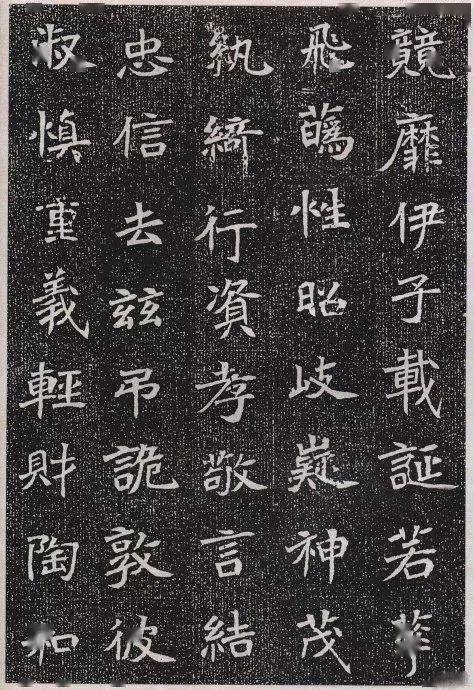 競靡伊子載誕若華
飛蘤性昭岐嶷神茂
紈綺行資孝敬言結
忠信去兹弔詭敦彼
淑慎重義輕財陶和